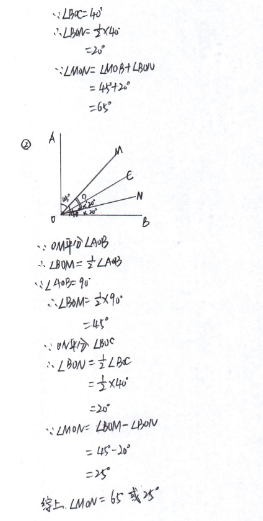 ∵∠BOC=40°
∴∠BON=½×40°
=20°
∵∠MON=∠MOB+∠BON
=45°+20°
=65°
②
A
M
C
N
O
B
∵OM平分∠AOB
∴∠BOM=½∠AOB
∵∠AOB=90°
∴∠BOM=½×90°
=45°
∵ON平分∠BOC
∴∠BON=½∠BOC
=½×40°
=20°
∵∠MON=∠BOM-∠BON
=45°-20°
=25°
综上,∠MON=65°或25°